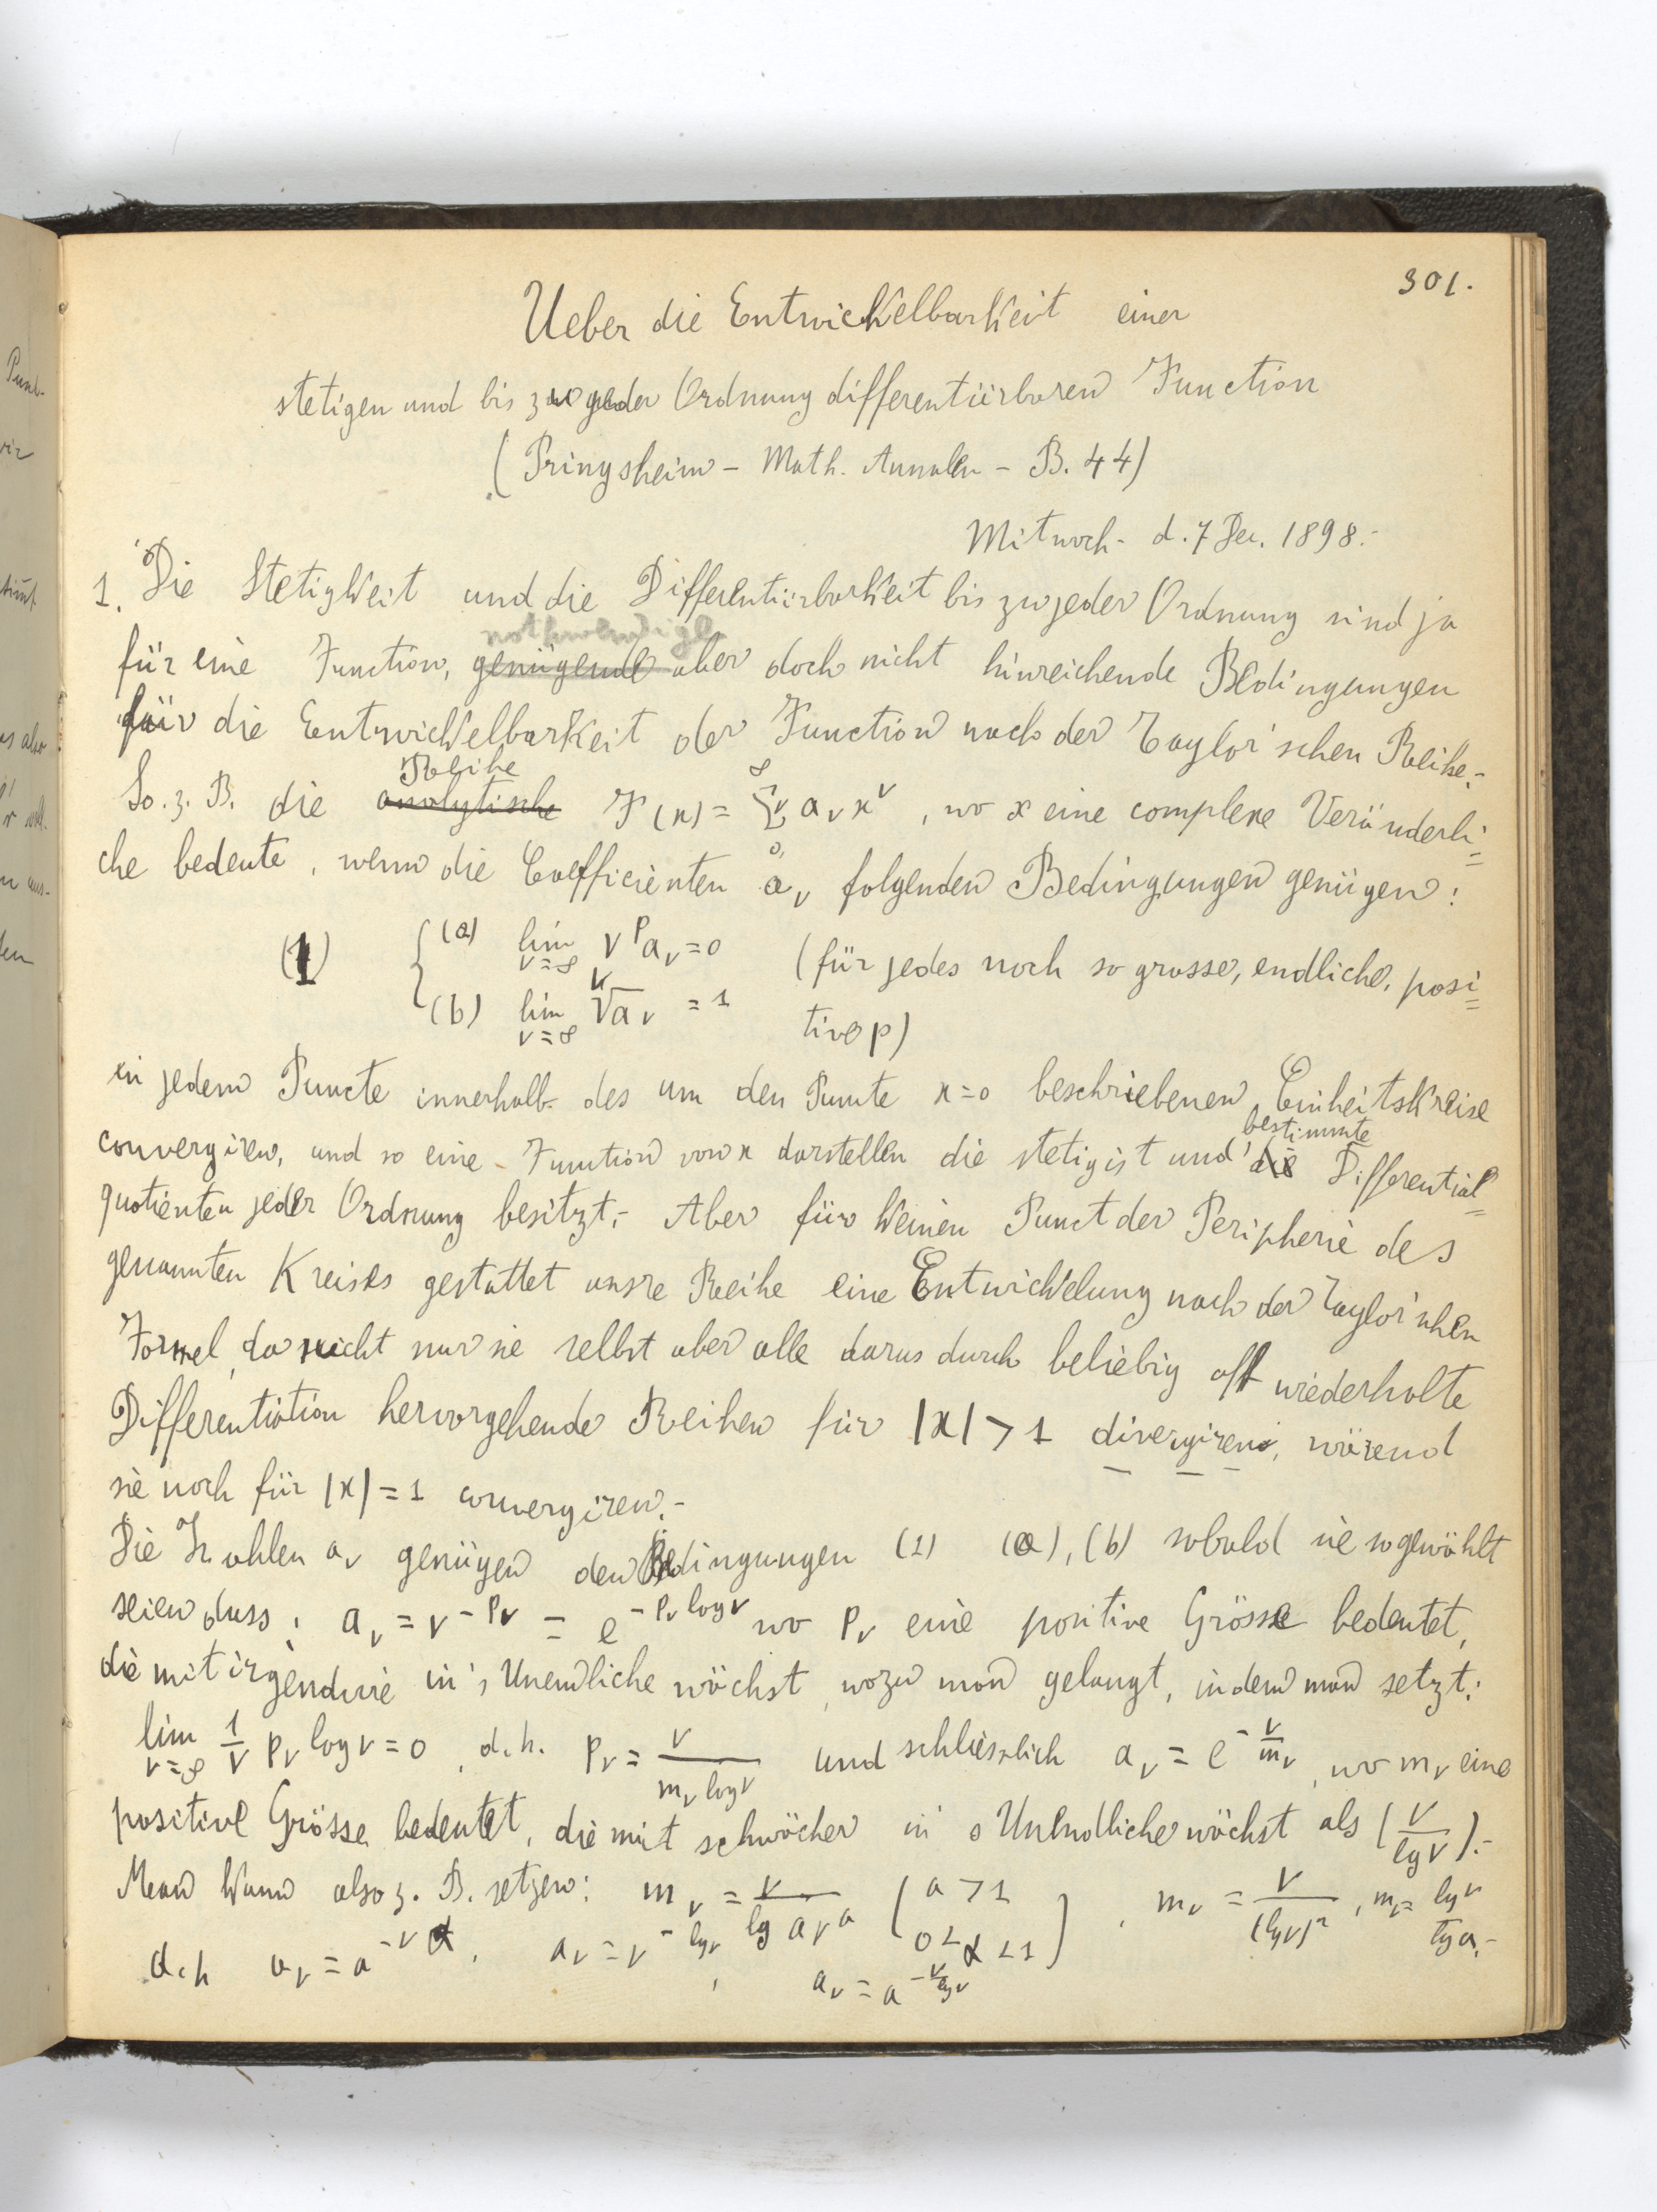 301.
Ueber die Entwickelbarkeit einer
stetigen und bis zu jeder Ordnung differentiirbaren Function
(Pringsheim – Math. Annalen – B. 44)
Mitwoch – d. 7 Dec. 1898.-
1. Die Stetigkeit und die Differentiirbarkeit bis zu jeder Ordnung sind ja
nothwendige
für eine Function, genügende aber doch nicht hinreichende Bedingungen
für die Entwickelbarkeit der Function nach der Taylor'schen Reihe.-
Reihe
So z. B. die analytische F(x) = ∞Σν0 aν x^ν, wo x eine complexe Veränderli=
che bedeute, wenn die Coefficienten aν folgenden Bedingungen genügen:
(1) { (a) lim ν=∞ ν^p aν = 0 (für jedes noch so grosse, endliche, posi=
(b) lim ν=∞ ν√aν = 1 tive p)
in jedem Puncte innerhalb des um den Puncte x=0 beschriebenen Einheitskreise
bestimmte
convergiren, und so eine Function von x darstellen die stetig ist und die Differential=
quotienten jeder Ordnung besitzt.- Aber für keinen Punct der Peripherie des
genannten Kreises gestattet unsre Reihe eine Entwickelung nach der Taylor'schen
Formel, da nicht nur sie selbst aber alle darus durch beliebig oft wiederholte
Differentiation hervorgehende Reihen für |x| > 1 divergiren, wärend
sie noch für |x| = 1 convergiren.-
Die Zahlen aν genügen den Bedingungen (1) (a), (b) sobald sie so gewählt
seien dass: aν = ν^{-pν} = e^{-pν log ν} wo pν eine positive Grösse bedeutet,
die mit irgendwie in's Unendliche wächst, wozu man gelangt, indem man setzt:
lim ν=∞ 1/ν pν log ν = 0, d.h. pν = ν/(mν log ν) und schliesslich aν = e^{-ν/mν}, wo mν eine
positive Grösse bedeutet, die mit schwächer in's Unendliche wächst als (ν/lg ν).-
Man kann also z. B. setzen: mν = ν/lg a ν^a (a > 1 0 < α < 1), mν = ν/(lg ν)^2, mν = lg ν/lg a.-
d.h aν = a^{-ν^α}, aν = ν^{-lg ν}, aν = a^{-ν/lg ν}